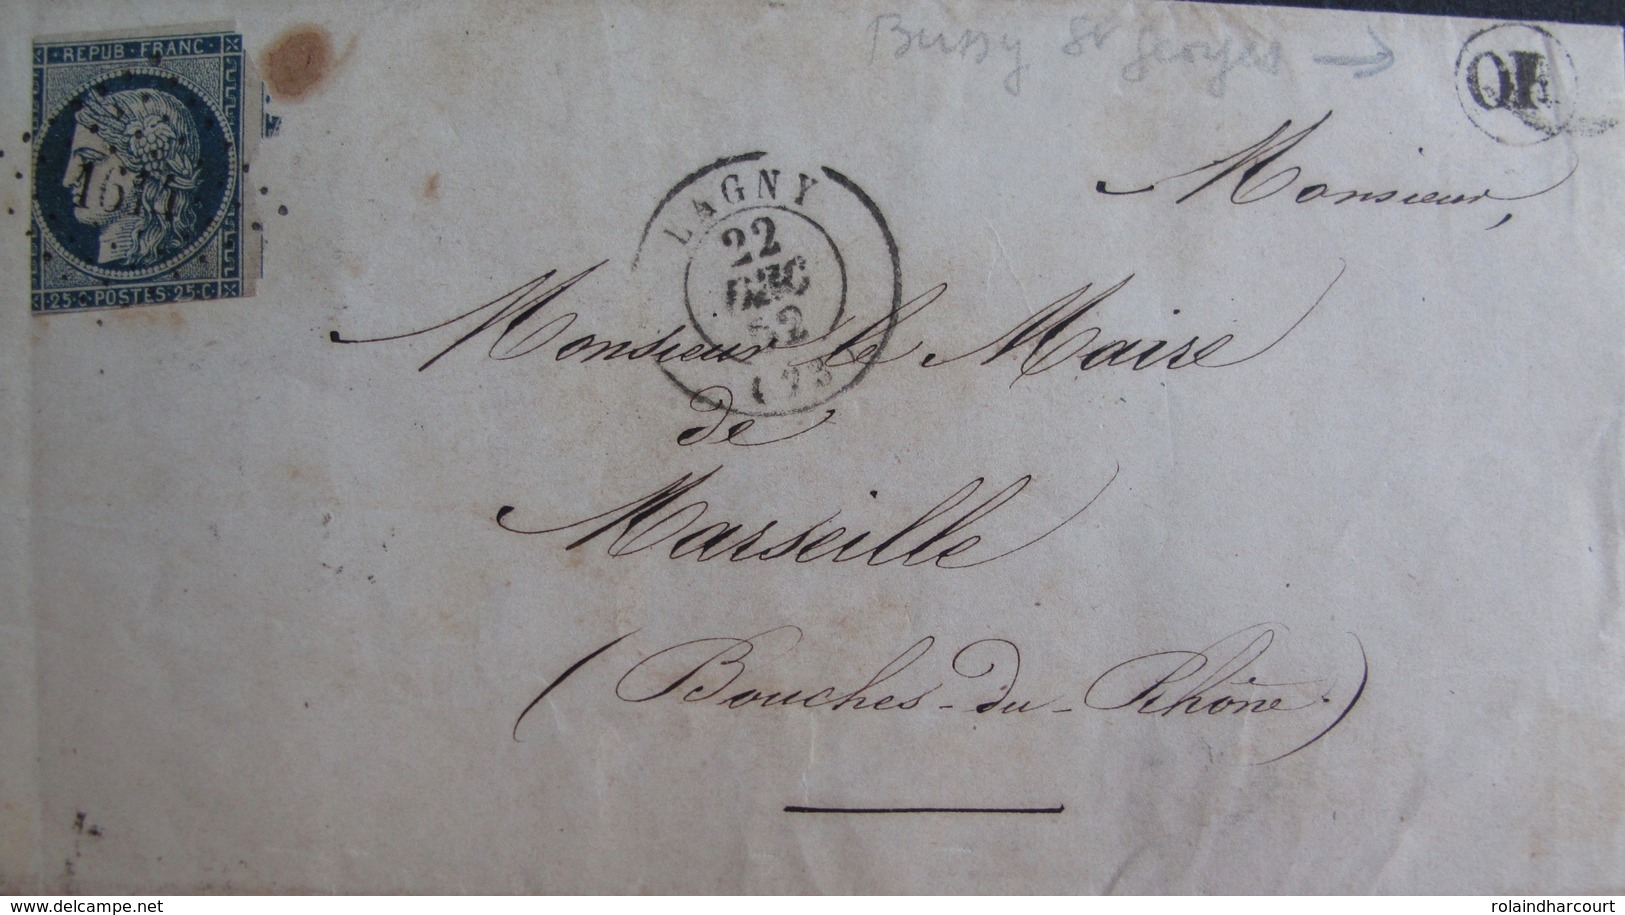 REPUB·FRANC·
25·C·POSTES·25·C·
Bussy St Georges →
LAGNY
22
DEC
52
Monsieur,
Monsieur le Maire
de
Marseille
(Bouches-du-Rhône.)
www.delcampe.net
rolaindharcourt